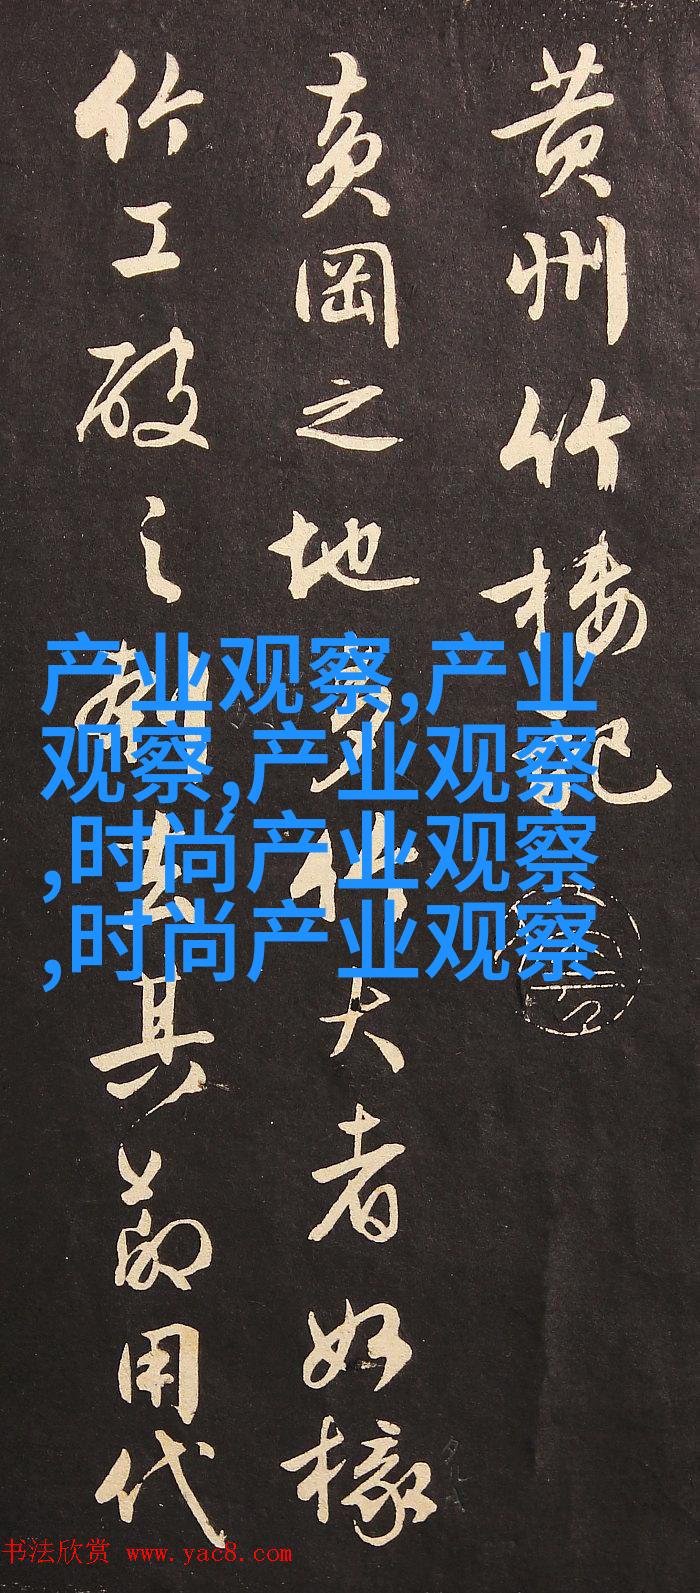 黄州竹楼記
黄岡之地多竹大者如椽
竹工破之刳去其節用代
产业观察,产业
观察,产业观察
,时尚产业观察
,时尚产业观察
书法欣赏 www.yac8.com